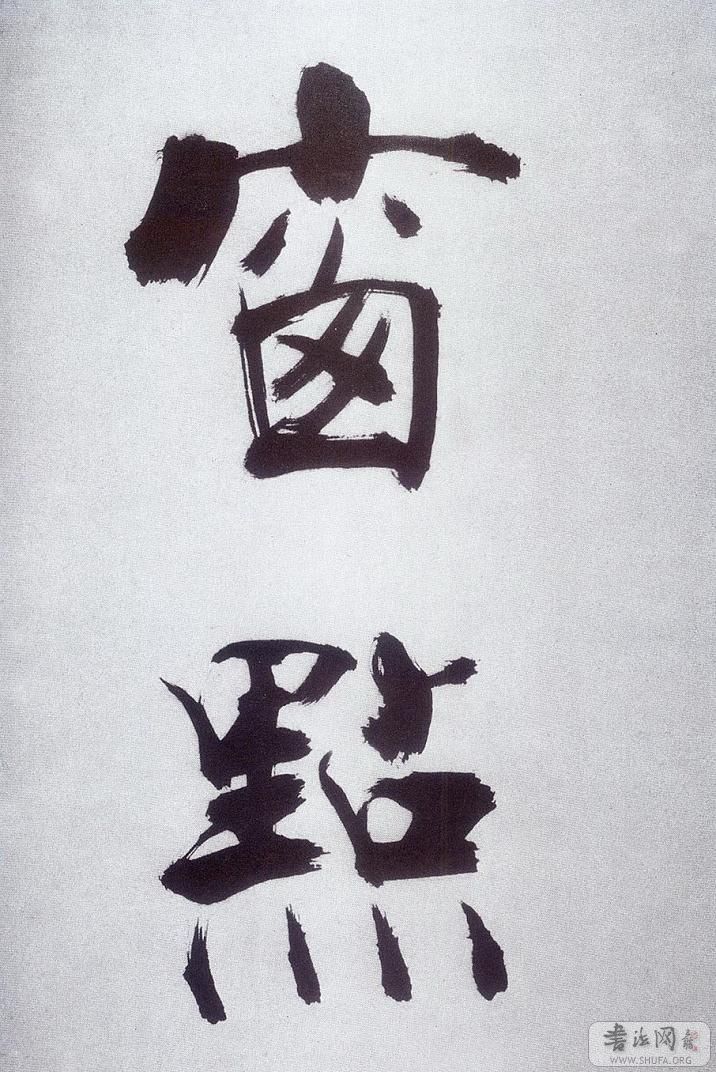 窗點
書法网
WWW.SHUFA.ORG